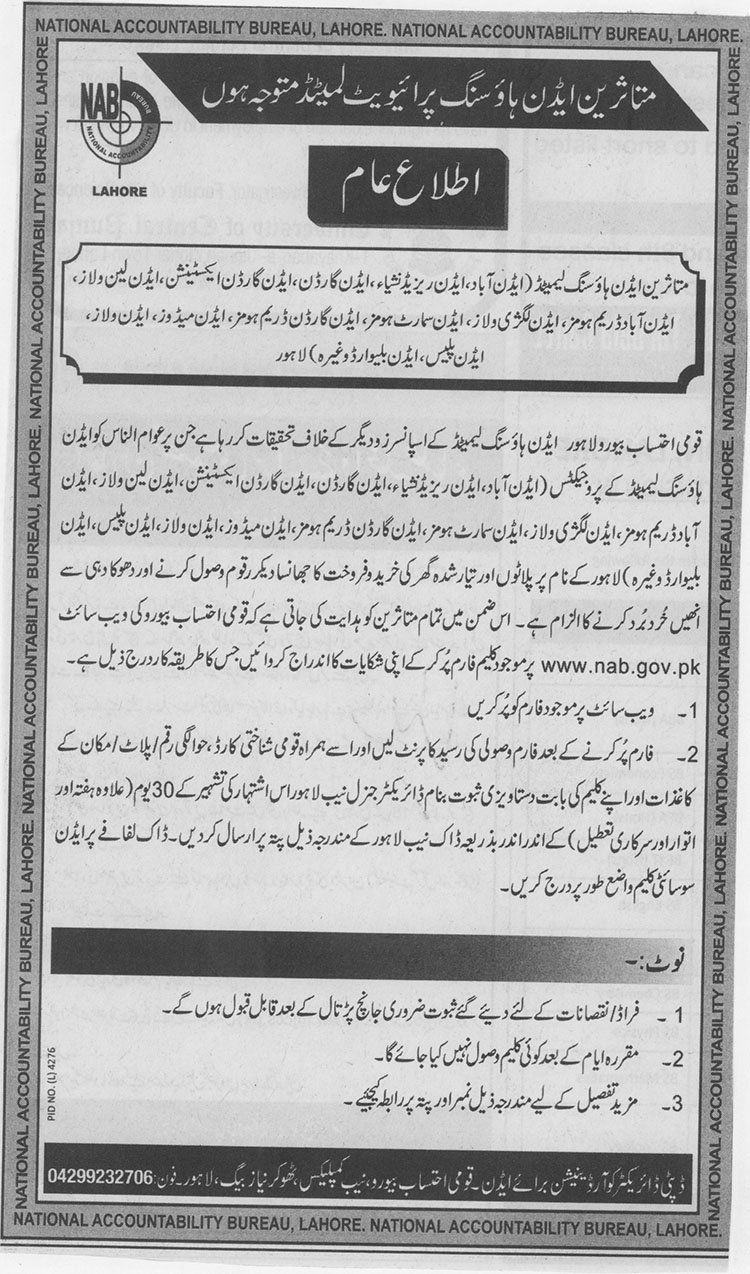 NATIONAL ACCOUNTABILITY BUREAU, LAHORE. NATIONAL ACCOUNTABILITY BUREAU, LAHORE.
متاثرین ایڈن ہاؤسنگ پرائیویٹ لمیٹڈ متوجہ ہوں
NAB
BUREAU
NATIONAL ACCOUNTABILITY
LAHORE
اطلاع عام
متاثرین ایڈن ہاؤسنگ لیمیٹڈ (ایڈن آباد، ایڈن ریزیڈنشیاء، ایڈن گارڈن، ایڈن گارڈن ایکسٹینشن، ایڈن لین ولاز،
ایڈن آباد ڈریم ہومز، ایڈن لگژی ولاز، ایڈن سمارٹ ہومز، ایڈن گارڈن ڈریم ہومز، ایڈن میڈوز، ایڈن ولاز،
ایڈن پلیس، ایڈن بلیوارڈ وغیرہ) لاہور
قومی احتساب بیورو لاہور ایڈن ہاؤسنگ لیمیٹڈ کے اسپانسرز و دیگر کے خلاف تحقیقات کر رہا ہے جن پر عوام الناس کو ایڈن
ہاؤسنگ لیمیٹڈ کے پروجیکٹس (ایڈن آباد، ایڈن ریزیڈنشیاء، ایڈن گارڈن، ایڈن گارڈن ایکسٹینشن، ایڈن لین ولاز، ایڈن
آباد ڈریم ہومز، ایڈن لگژی ولاز، ایڈن سمارٹ ہومز، ایڈن گارڈن ڈریم ہومز، ایڈن میڈوز، ایڈن ولاز، ایڈن پلیس، ایڈن
بلیوارڈ وغیرہ) لاہور کے نام پر پلاٹوں اور تیار شدہ گھر کی خرید و فروخت کا جھانسا دیکر رقوم وصول کرنے اور دھوکا دہی سے
انھیں خُرد بُرد کرنے کا الزام ہے۔ اس ضمن میں تمام متاثرین کو ہدایت کی جاتی ہے کہ قومی احتساب بیورو کی ویب سائٹ
www.nab.gov.pk پر موجود کلیم فارم پُر کر کے اپنی شکایات کا اندراج کروائیں جس کا طریقہ کار درج ذیل ہے۔
1۔ ویب سائٹ پر موجود فارم کو پُر کریں
2۔ فارم پُر کرنے کے بعد فارم وصولی کی رسید کا پرنٹ لیں اور اسے ہمراہ قومی شناختی کارڈ، حوالگی رقم/پلاٹ/مکان کے
کاغذات اور اپنے کلیم کی بابت دستاویزی ثبوت بنام ڈائریکٹر جنرل نیب لاہور اس اشتہار کی تشہیر کے 30 یوم (علاوہ ہفتہ اور
اتوار اور سرکاری تعطیل) کے اندر اندر بذریعہ ڈاک نیب لاہور کے مندرجہ ذیل پتہ پر ارسال کر دیں۔ ڈاک لفافے پر ایڈن
سوسائٹی کلیم واضع طور پر درج کریں۔
نوٹ:۔
1۔ فراڈ/نقصانات کے لئے دیئے گئے ثبوت ضروری جانچ پڑتال کے بعد قابل قبول ہوں گے۔
2۔ مقررہ ایام کے بعد کوئی کلیم وصول نہیں کیا جائے گا۔
3۔ مزید تفصیل کے لیے مندرجہ ذیل نمبر اور پتہ پر رابطہ کیجئیے۔
PID NO. (L) 4276
ڈپٹی ڈائریکٹر کوآرڈینیشن برائے ایڈن۔ قومی احتساب بیورو، نیب کمپلیکس، ٹھوکر نیاز بیگ، لاہور۔ فون: 04299232706
NATIONAL ACCOUNTABILITY BUREAU, LAHORE. NATIONAL ACCOUNTABILITY BUREAU, LAHORE.
NATIONAL ACCOUNTABILITY BUREAU, LAHORE. NATIONAL ACCOUNTABILITY BUREAU, LAHORE. NATIONAL ACCOUNTABILITY BUREAU, LAHORE
NATIONAL ACCOUNTABILITY BUREAU, LAHORE. NATIONAL ACCOUNTABILITY BUREAU, LAHORE. NATIONAL ACCOUNTABILITY BUREAU, LAHORE